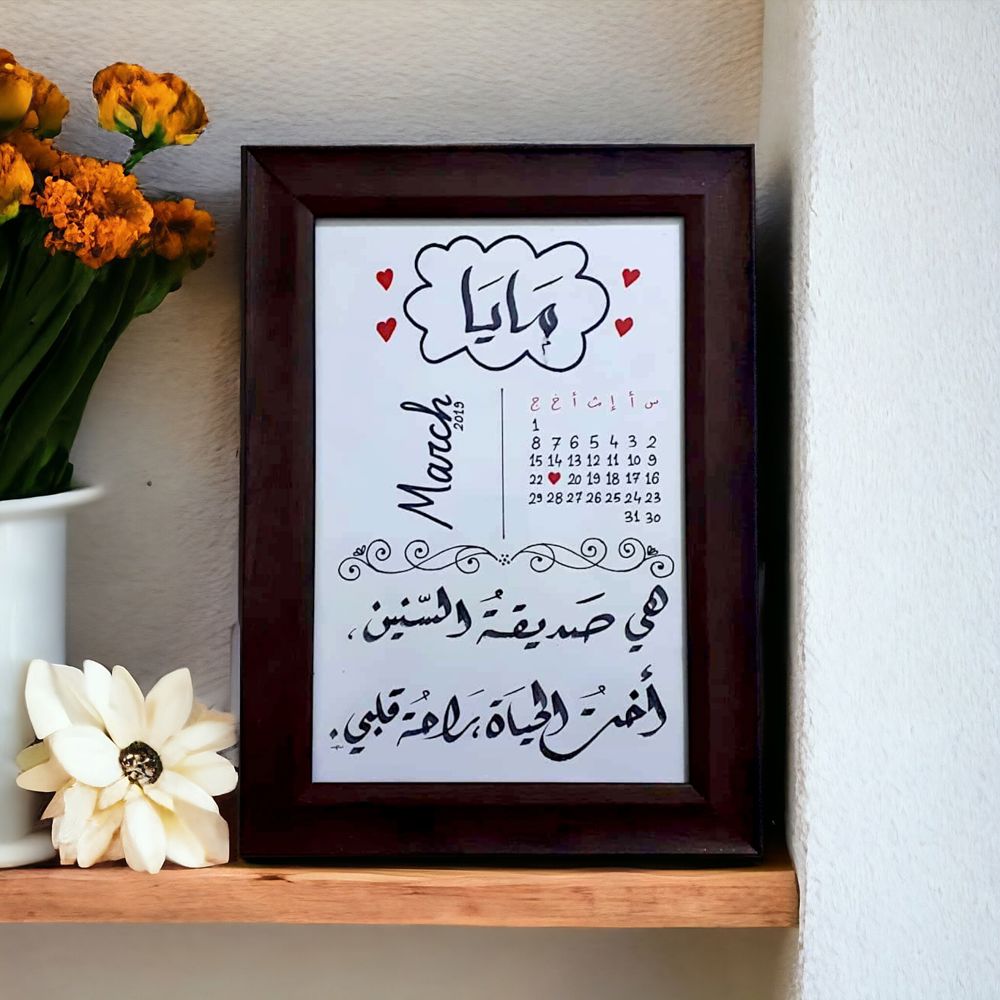 مَايَا
March
2019
س أ إ ث أ خ ج
1
2 3 4 5 6 7 8
9 10 11 12 13 14 15
16 17 18 19 20 ♥ 22
23 24 25 26 27 28 29
30 31
هي صَديقةُ السّنين،
أختُ الحيَاة، رَاحةُ قلبي.